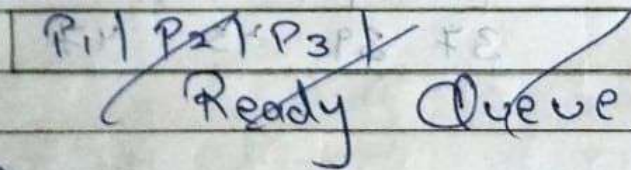 P1 | P2 | P3 |
Ready Queue